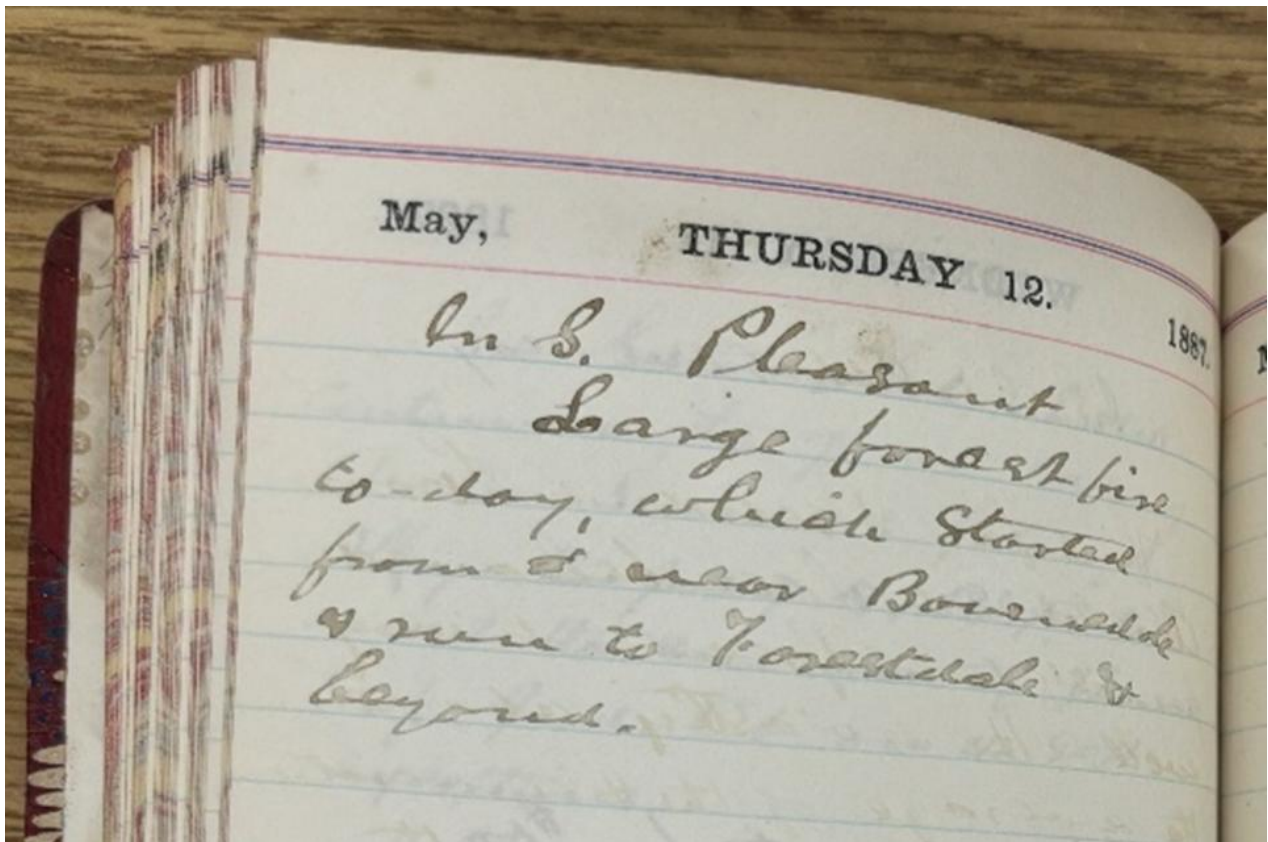 May, THURSDAY 12. 1887.
In S. Pleasant
Large forest fire
to-day, which Started
from near
& run to Forestdale &
beyond.